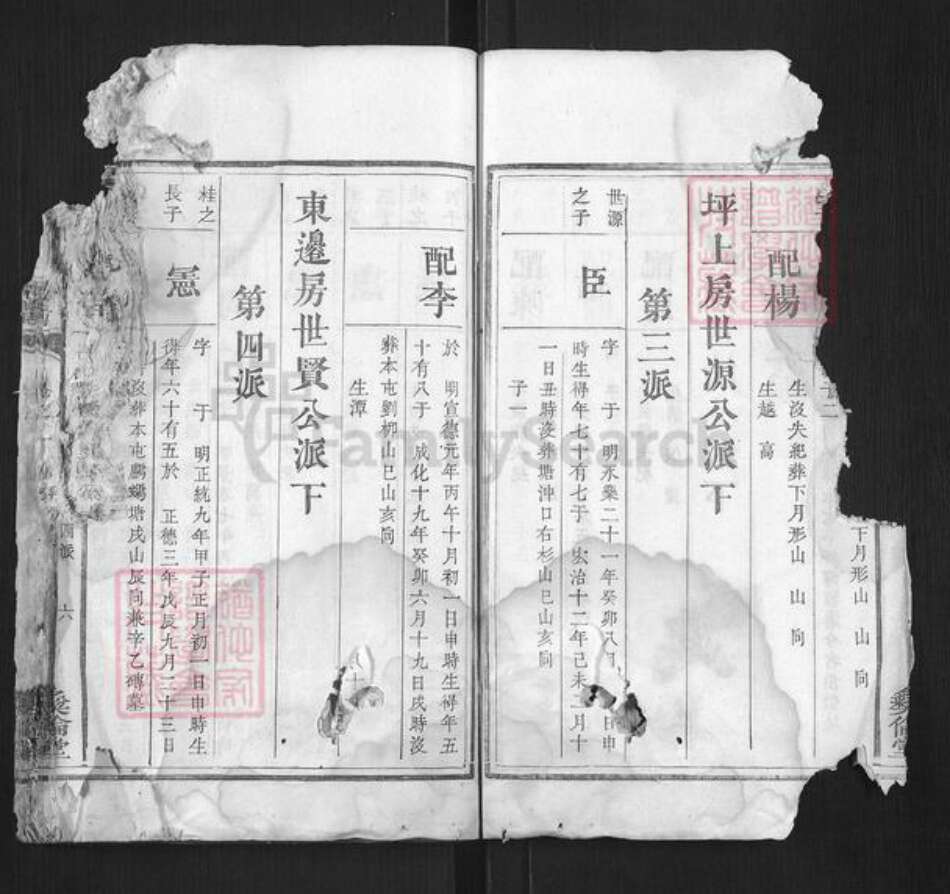 下月形山 山 向
彝倫堂
子二
配楊
生沒失紀葬下月形山 山 向
生越 高
坪上房世源公派下
第三派
世源
之子
臣
字 于 明永樂二十一年癸卯八月 日申
時生得年七十有七于 宏治十二年己未 月十
一日丑時沒葬塘沖口右杉山巳山亥向
子一
配李
於 明宣德元年丙午十月初一日申時生得年五
十有八于 成化十九年癸卯六月十九日戌時沒
葬本屯劉柳山巳山亥向
生潭
東邊房世賢公派下
第四派
桂之
長子
憲
字 于 明正統九年甲子正月初一日申時生
得年六十有五於 正德三年戊辰九月二十三日
沒葬本屯 塘戌山辰向兼辛乙磚墓
四派
六
倫堂
FamilySearch